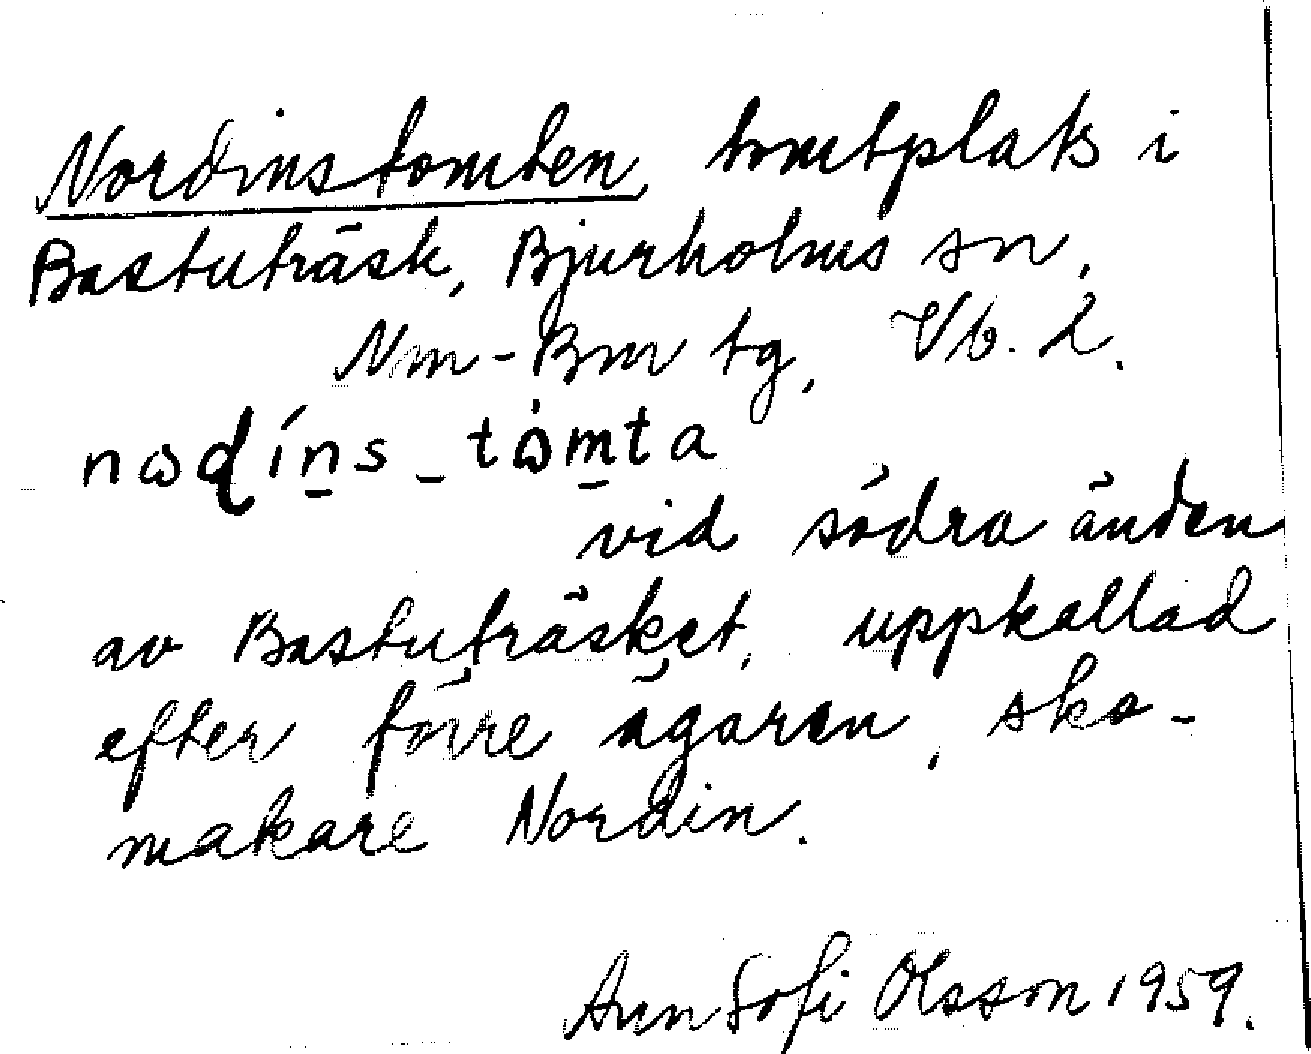 Nordinstomten, tomtplats i
Bastuträsk, Bjurholms sn,
Nm-Bm tg, Vb. l.
nωɖíns_tὼmta
vid södra änden
av Bastuträsket, uppkallad
efter förre ägaren, sko-
makare Nordin.
Ann Sofi Olsson 1959.